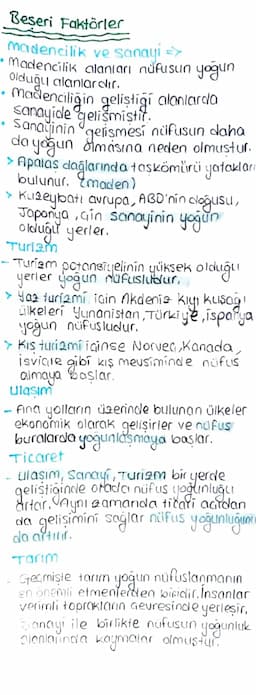 Beşeri Faktörler
Madencilik ve Sanayi =>
• Madencilik alanları nüfusun yoğun
olduğu alanlardır.
• Madenciliğin geliştiği alanlarda
sanayide gelişmiştir.
• Sanayinin gelişmesi nüfusun daha
da yoğun olmasına neden olmuştur.
> Apalaş dağlarında taşkömürü yatakları
bulunur. (maden)
> Kuzeybatı avrupa, ABD'nin doğusu,
Japonya, Çin Sanayinin yoğun
olduğu yerler.
Turizm
- Turizm potansiyelinin yüksek olduğu
yerler yoğun nüfusludur.
> Yaz turizmi için Akdeniz kıyı kuşağı
ülkeleri Yunanistan, Türkiye, İspanya
yoğun nüfusludur.
> Kış turizmi içinse Norveç, Kanada,
İsviçre gibi kış mevsiminde nüfus
almaya başlar.
Ulaşım
- Ana yolların üzerinde bulunan ülkeler
ekonomik olarak gelişirler ve nüfus
buralarda yoğunlaşmaya başlar.
Ticaret
- Ulaşım, Sanayi, Turizm bir yerde
geliştiğinde orada nüfus yoğunluğu
artar. Aynı zamanda ticari açıdan
da gelişimini sağlar nüfus yoğunluğunu
da artırır.
Tarım
- Geçmişte tarım yoğun nüfuslanmanın
en önemli etmenlerden biridir. İnsanlar
verimli toprakların çevresinde yerleşir.
Sanayi ile birlikte nüfusun yoğunluk
alanlarında kaymalar olmuştur.